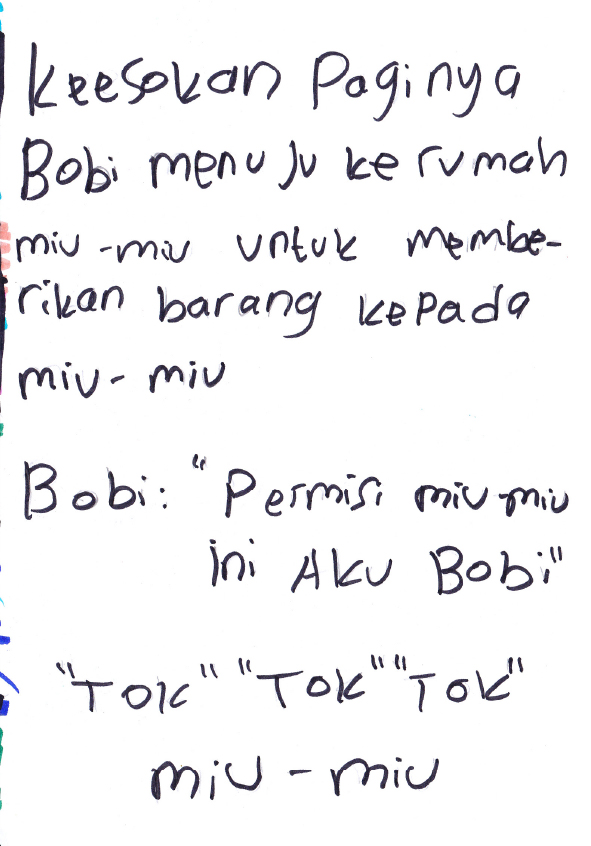 Keesokan Paginya
Bobi menuju ke rumah
miu-miu untuk membe-
rikan barang kepada
miu-miu
Bobi: "Permisi miu-miu
ini Aku Bobi"
"Tok" "Tok" "Tok"
miu-miu